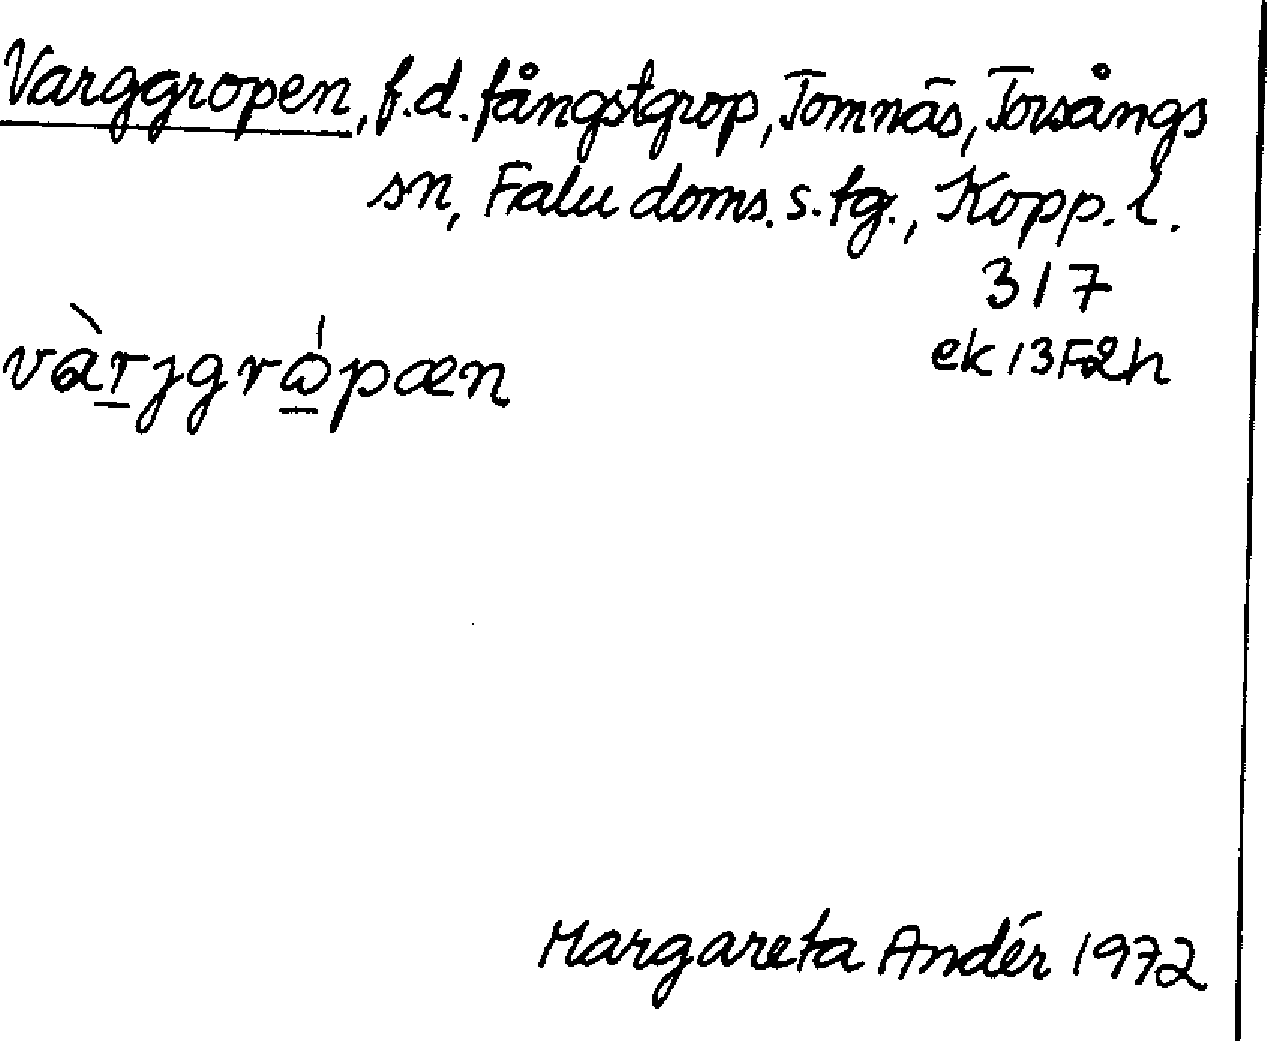 Varggropen, f.d. fångstgrop, Tomnäs, Torsångs
sn, Falu doms. s. tg., Kopp. l.
317
ek 13F2h
vàrjgrópæn
Margareta Andér 1972